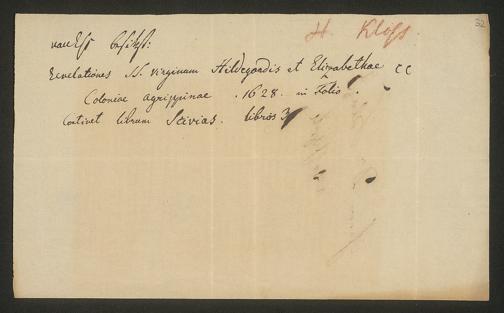 H. Kloss.
32
van Ess besitzt:
Revelationes SS. virginum Hildegardis et Elizabethae
Coloniae agrippinae . 1628. in Folio .
Continet librum Scivias. libros 3